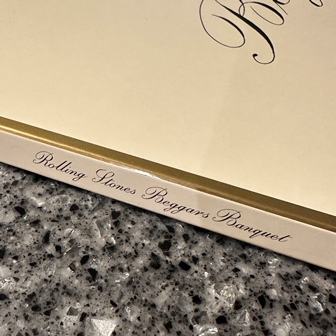 Rolling Stones Beggars Banquet